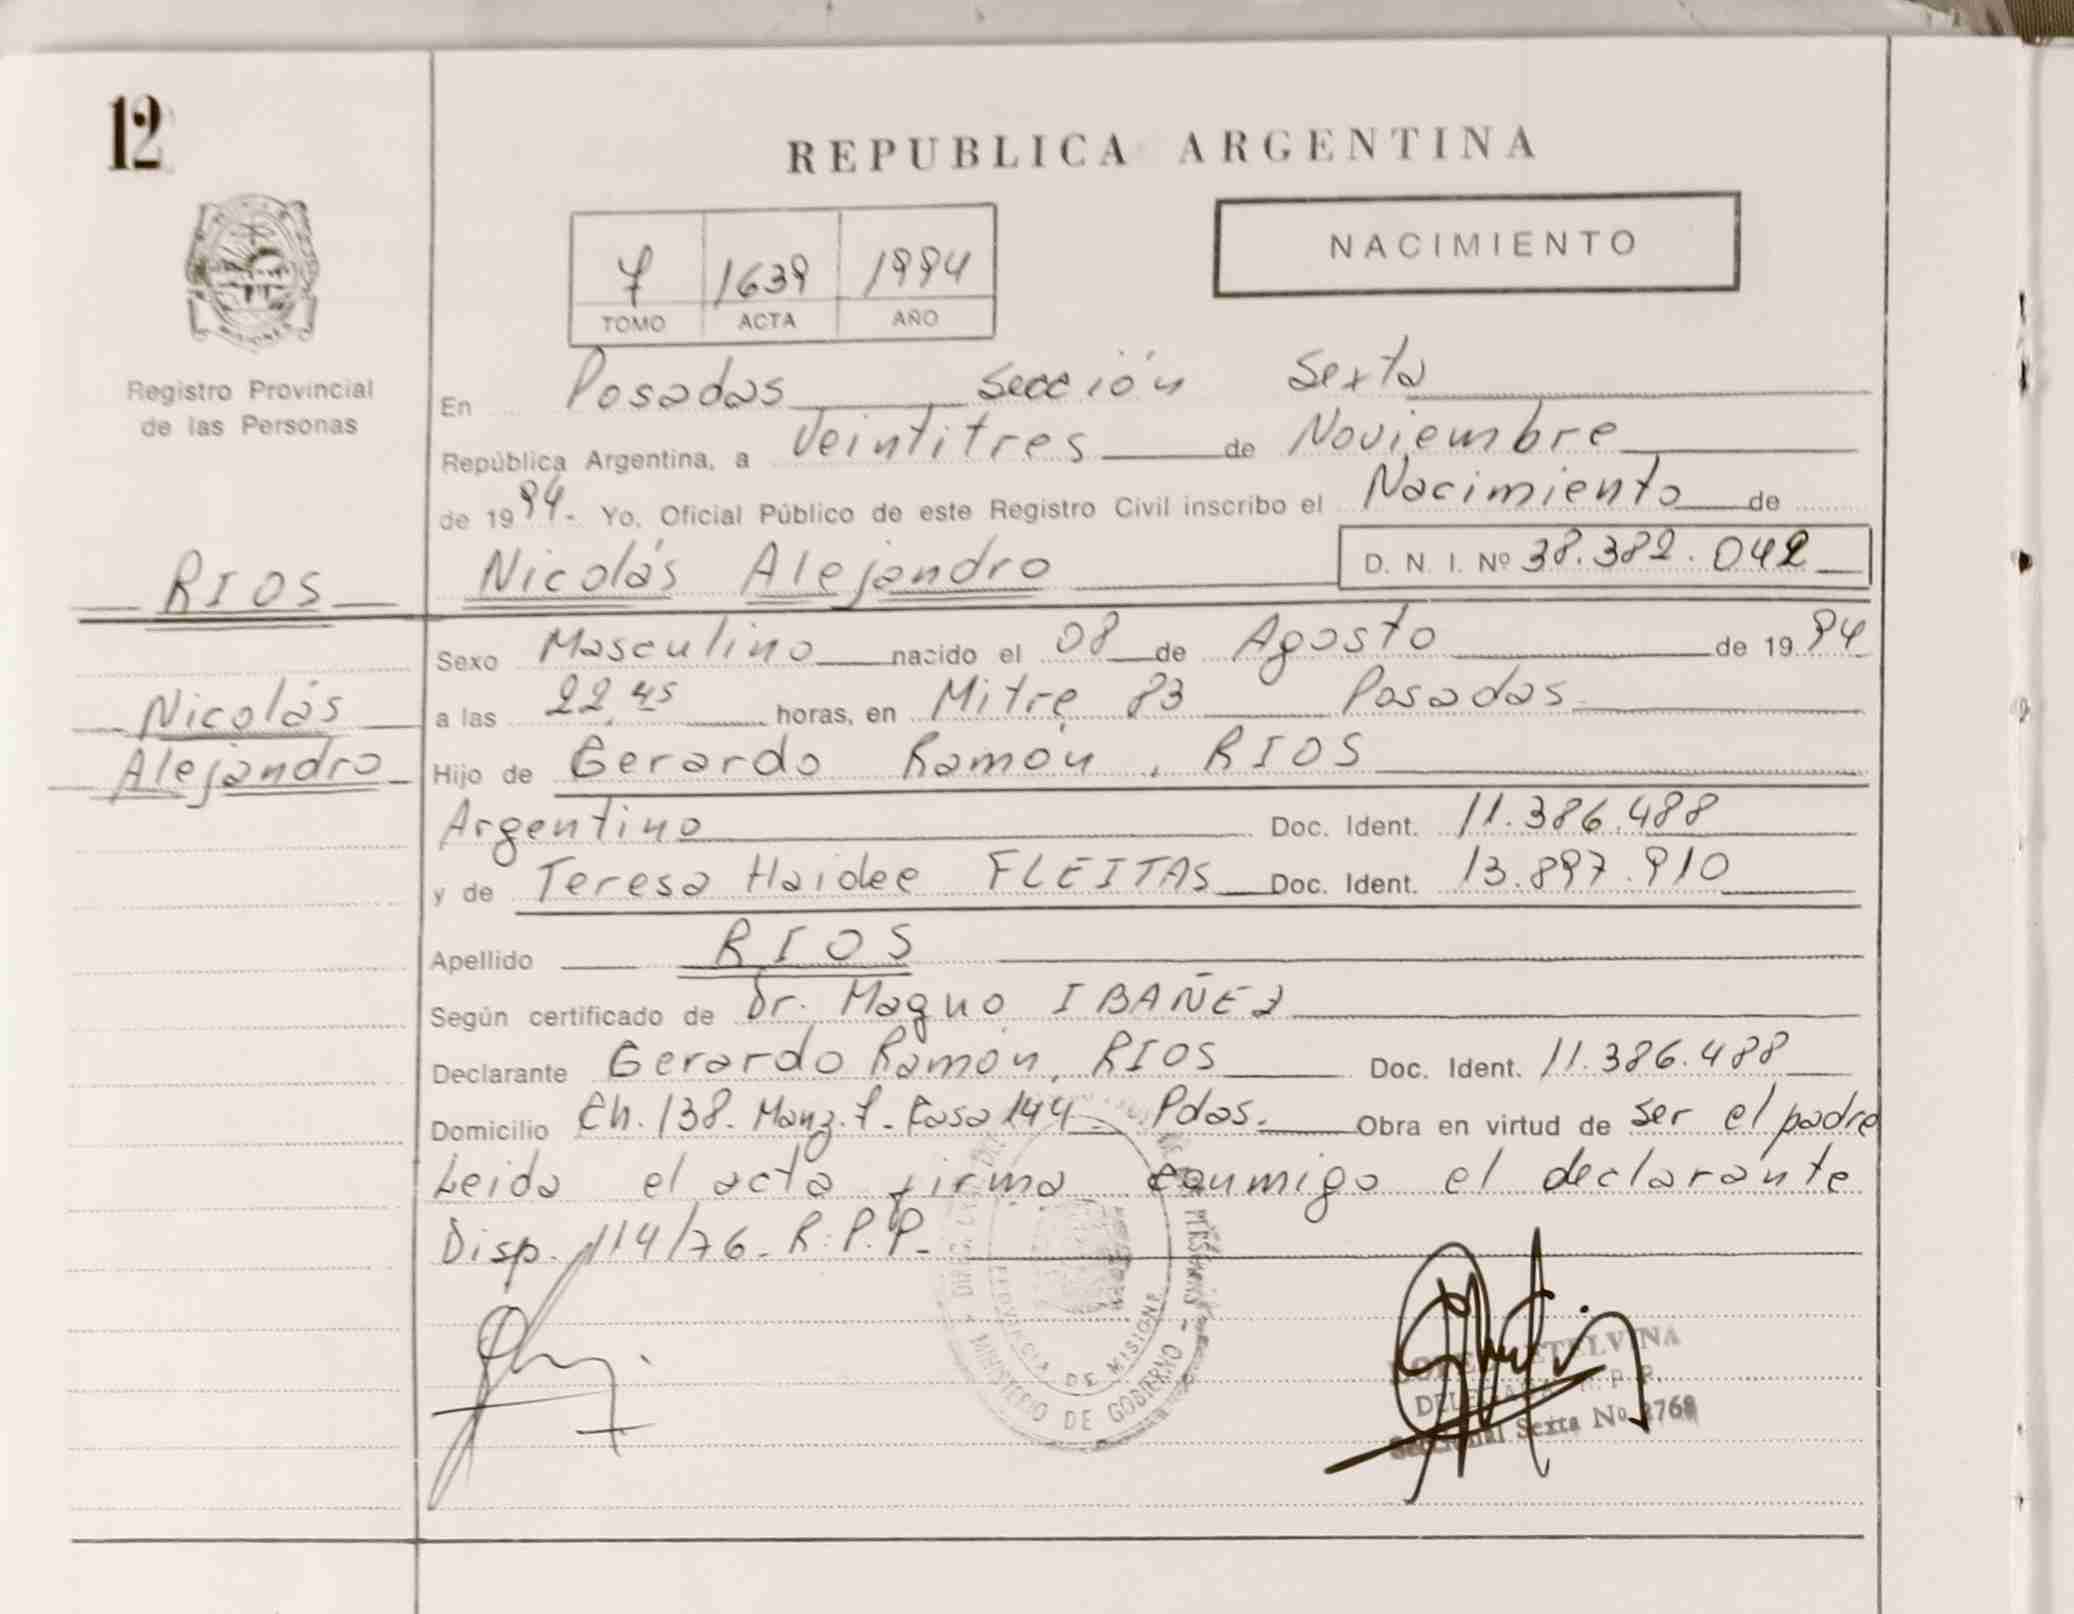 12
REPUBLICA ARGENTINA
NACIMIENTO
7 1639 1994
TOMO ACTA AÑO
Registro Provincial
de las Personas
En Posadas Sección Sexta
República Argentina, a Veintitres de Noviembre
de 1994- Yo, Oficial Público de este Registro Civil inscribo el Nacimiento de
RIOS Nicolás Alejandro D. N. I. Nº 38.382.042
Sexo Masculino nacido el 08 de Agosto de 1994
Nicolás
a las 22,45 horas, en Mitre 83 Posadas
Alejandro
Hijo de Gerardo Ramón, RIOS
Argentino Doc. Ident. 11.386.488
y de Teresa Haidee FLEITAS Doc. Ident. 13.897.910
Apellido RIOS
Según certificado de Dr. Magno IBAÑEZ
Declarante Gerardo Ramón, RIOS Doc. Ident. 11.386.488
Domicilio Ch. 138. Manz. 7- Casa 144- Pdas. Obra en virtud de ser el padre
Leida el acta firma conmigo el declarante
Disp. 114/76- R.P.P-
PROVINCIA DE MISIONES
MINISTERIO DE GOBIERNO
ETELVINA
Seccional Sexta Nº 2768